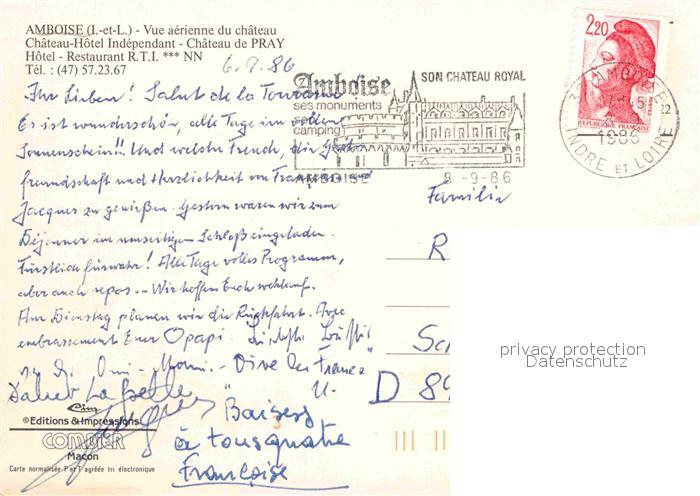 AMBOISE (I.-et-L.) - Vue aérienne du château
Château-Hôtel Indépendant - Château de PRAY
Hôtel - Restaurant R.T.I. *** NN
Tél. : (47) 57.23.67
6.9.86
Ihr Lieben! Salut de la Touraine
Es ist wunderschön, alle Tage im vollen
Sonnenschein!! Und welche Freud, die Gast-
freundschaft und Herzlichkeit von Françoise und
Jacques zu genießen. Gestern waren wir zum
Déjeuner im umseitigen Schloß eingeladen.
Fürstlich fürwahr! Alle Tage volles Programm,
aber auch repos. - Wir hoffen Euch wohlauf.
Am Dienstag planen wir die Rückfahrt. Avec
embrassement Euer Opapi.
Omi
Vive la France"
Salut
"Baisers
à tous quatre
Françoise
Amboise
SON CHATEAU ROYAL
ses monuments
son
camping
AMBOISE
8-9-86
2,20
REPUBLIQUE FRANÇAISE
AMBOISE
1986
INDRE ET LOIRE
Familie
R
Sc
D 89
privacy protection
Datenschutz
cim
©Editions & Impressions
COMBIER
Macon
Carte normalisée P et T agréée tri électronique